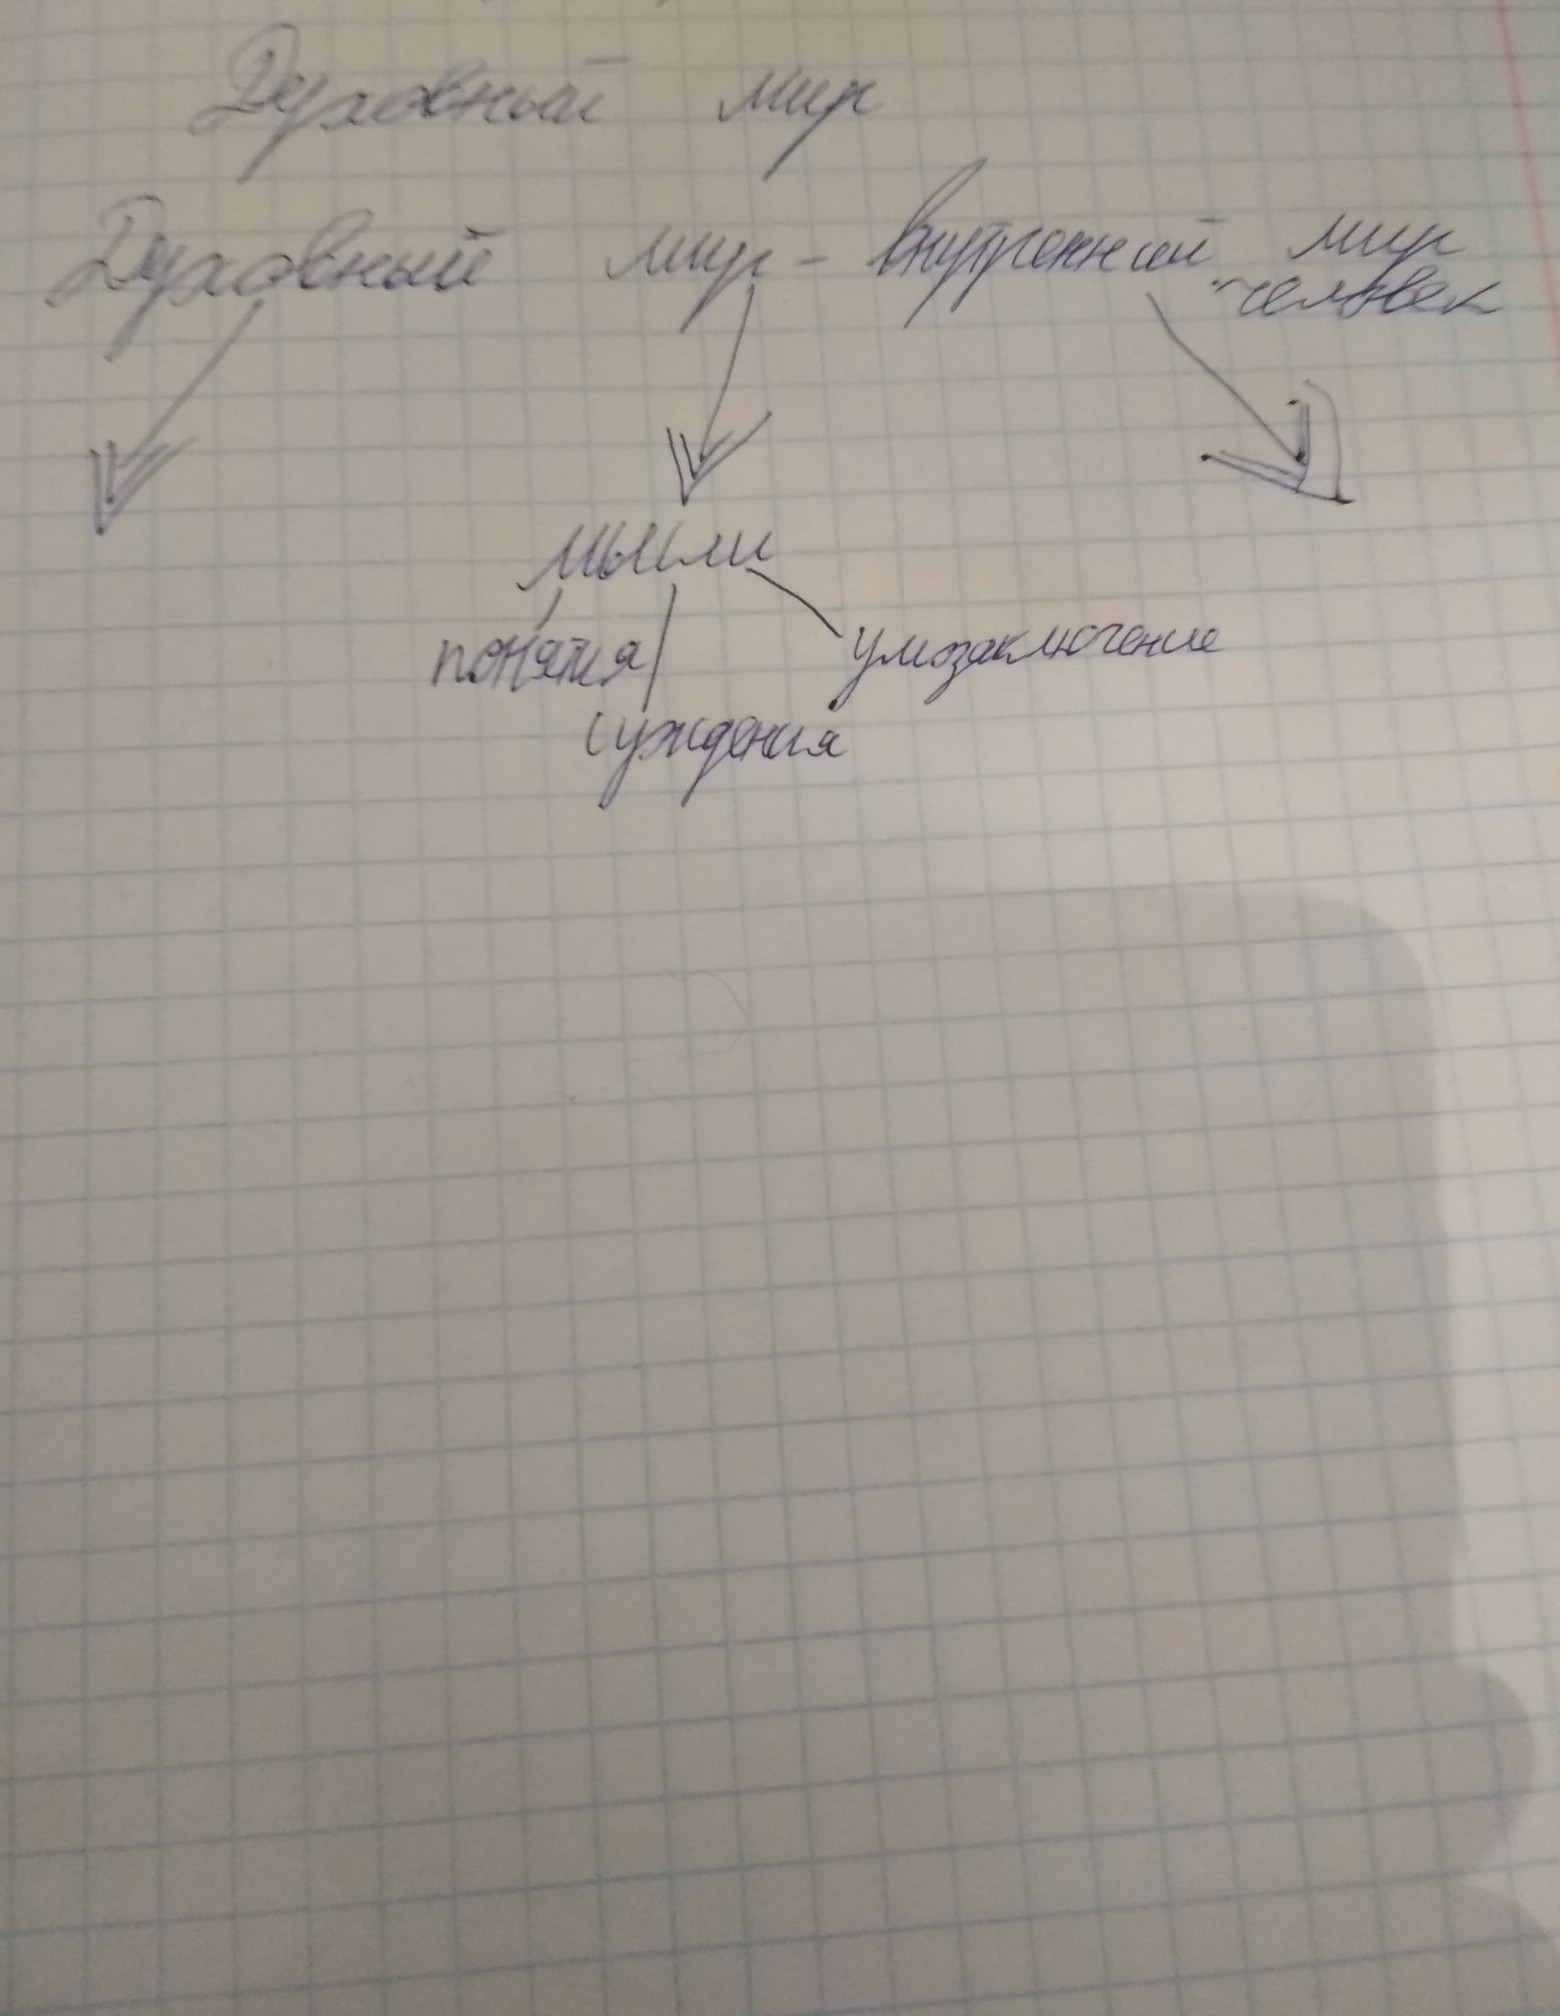 Духовный мир
Духовный мир - внутренний мир
человек
мысли
понятия
умозаключение
суждения